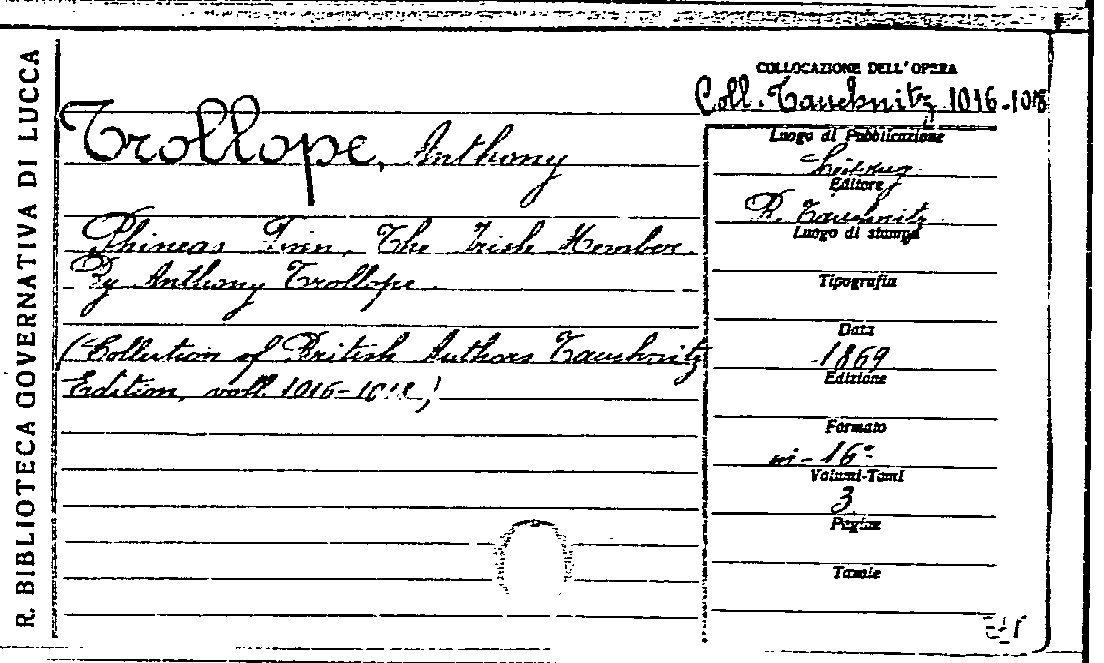 R. BIBLIOTECA GOVERNATIVA DI LUCCA
COLLOCAZIONE DELL'OPERA
Coll. Tauchnitz 1016-1018
Trollope, Anthony
Phineas Finn, The Irish Member.
By Anthony Trollope.
(Collection of British Authors Tauchnitz
Edition, voll. 1016-1018)
Luogo di Pubblicazione
Leipzig
Editore
B. Tauchnitz
Luogo di stampa
Tipografia
Data
1869
Edizione
Formato
in-16°
Volumi-Tomi
3
Pagine
Tavole